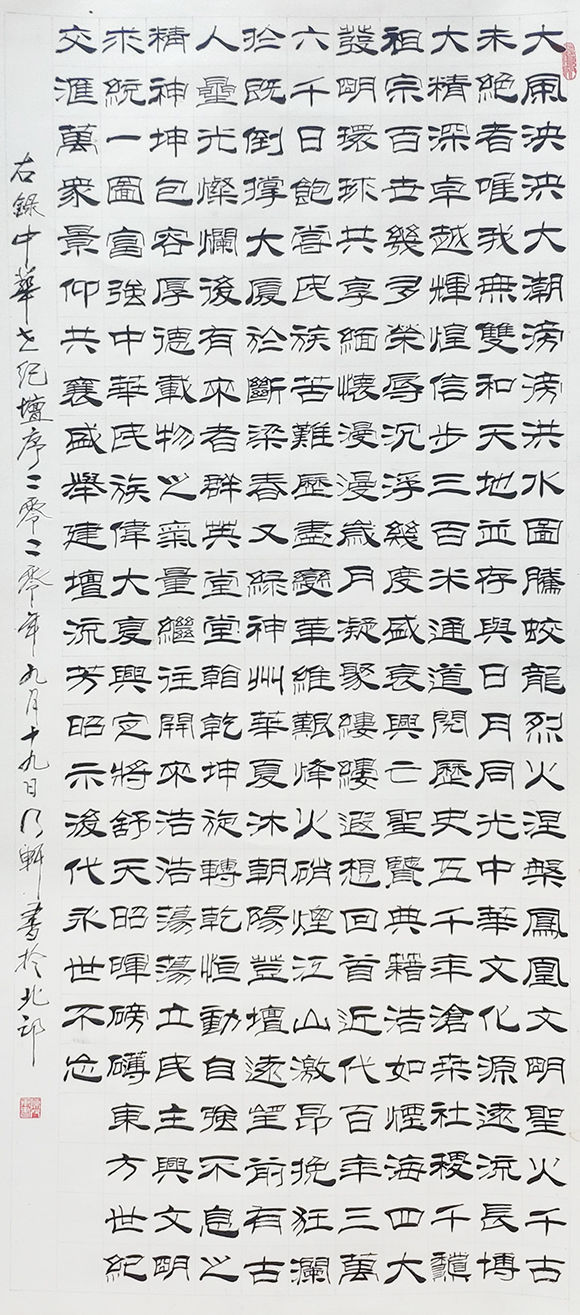 大風泱泱大潮滂滂洪水圖騰蛟龍烈火涅槃鳳凰文明聖火千古
未絕者唯我無雙和天地並存與日月同光中華文化源遠流長博
大精深卓越輝煌信步三百米通道閱歷史五千年滄桑社稷千龝
祖宗百世幾多榮辱沉浮幾度盛衰興亡聖賢典籍浩如煙海四大
發明環球共享緬懷漫漫歲月凝聚縷縷遐想回首近代百年三萬
六千日飽嘗民族苦難歷盡變華維艱烽火硝煙江山激昂挽狂瀾
於既倒撐大廈於斷梁春又綠神州華夏沐朝陽登壇遠望前有古
人曐光燦爛後有來者群英堂堂看乾坤旋轉乾恒動自強不息之
精神坤包容厚德載物之氣量繼往開來浩浩蕩蕩立民主興文明
求統一圖富強中華民族偉大夏興定將舒天昭暉磅礴東方世紀
交滙萬衆景仰共襄盛舉建壇流芳昭示後代永世不忘
右錄中華世紀壇序二零二零年九月十九日乃軒書於北邙